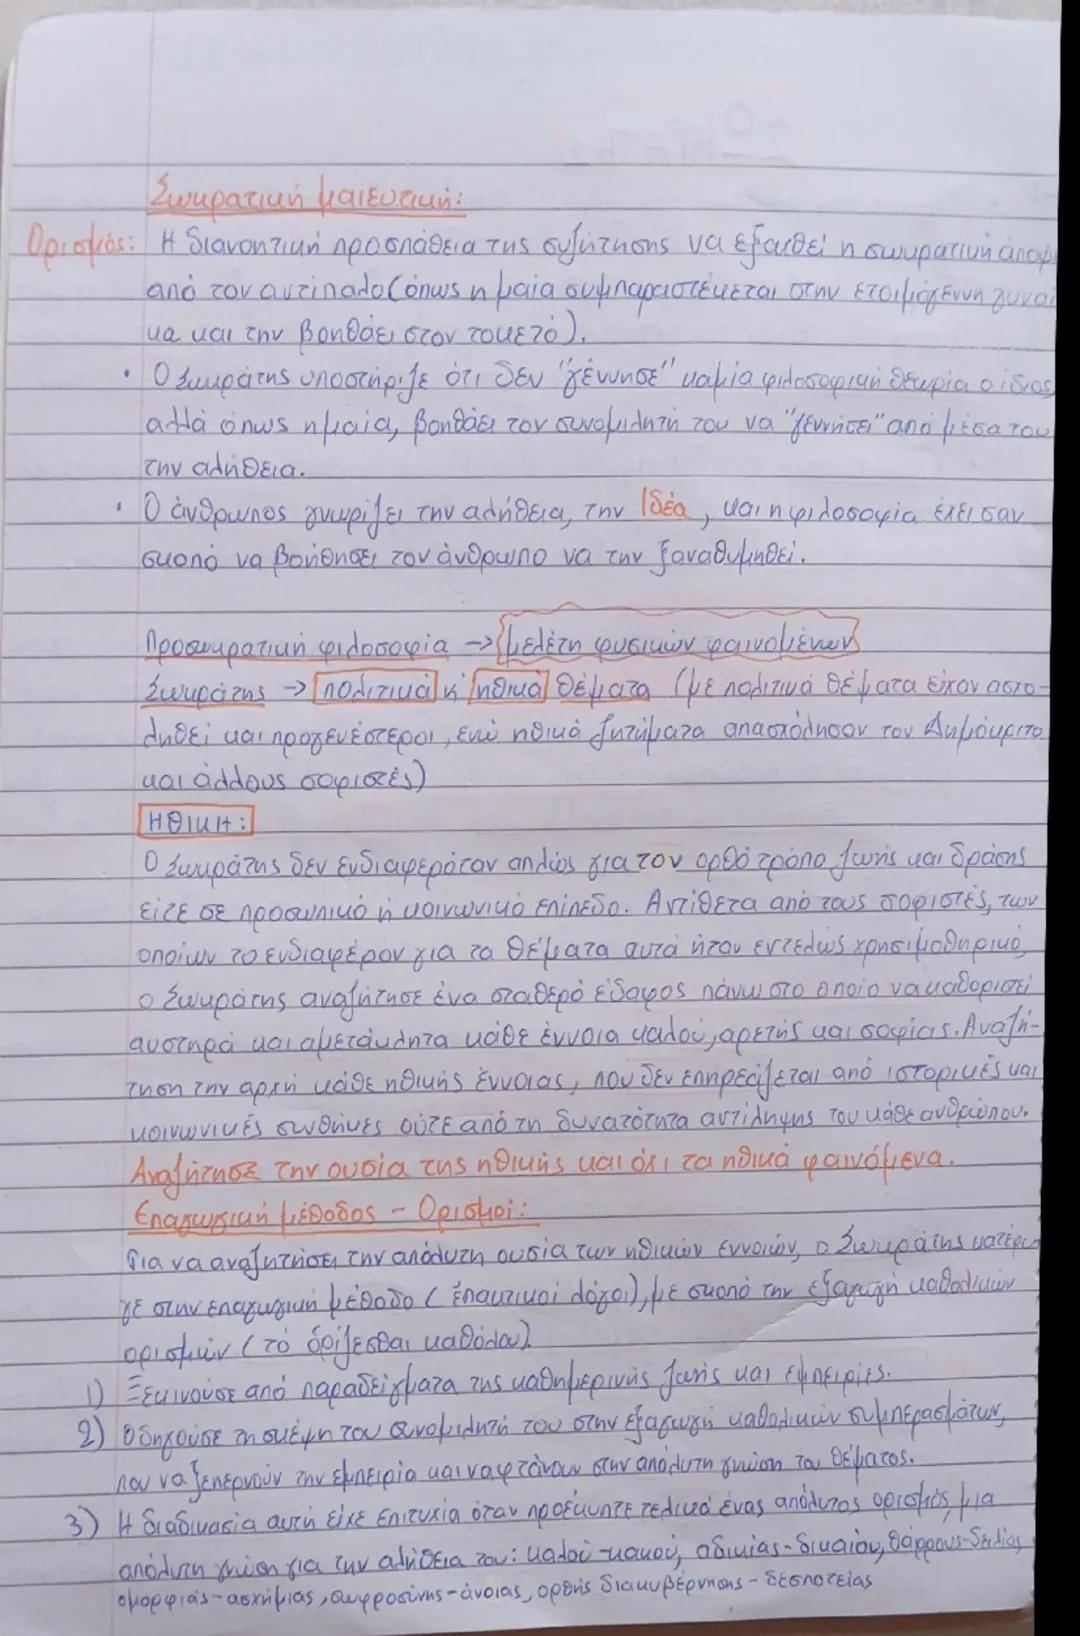 Σωκρατική μαιευτική:
Ορισμός: Η διανοητική προσπάθεια της συζήτησης να εξαχθεί η σωκρατική άποψ
από τον αντίπαλο (όπως η μαία συμπαραστέκεται στην ετοιμόγεννη γυναί
κα και την βοηθάει στον τοκετό).
• Ο Σωκράτης υποστήριζε ότι δεν "γέννησε" καμία φιλοσοφική θεωρία ο ίδιος
αλλά όπως η μαία, βοηθάει τον συνομιλητή του να "γεννήσει" από μέσα του
την αλήθεια.
• Ο άνθρωπος γνωρίζει την αλήθεια, την Ιδέα, και η φιλοσοφία έχει σαν
σκοπό να βοηθήσει τον άνθρωπο να την ξαναθυμηθεί.
Προσωκρατική φιλοσοφία → μελέτη φυσικών φαινομένων
Σωκράτης → πολιτικά κ' ηθικά θέματα (με πολιτικά θέματα είχαν ασχο-
ληθεί και προγενέστεροι, ενώ ηθικά ζητήματα απασχόλησαν τον Δημόκριτο
και άλλους σοφιστές)
ΗΘΙΚΗ:
Ο Σωκράτης δεν ενδιαφερόταν απλώς για τον ορθό τρόπο ζωής και δράσης
είτε σε προσωπικό ή κοινωνικό επίπεδο. Αντίθετα από τους σοφιστές, των
οποίων το ενδιαφέρον για τα θέματα αυτά ήταν εντελώς χρησιμοθηρικό,
ο Σωκράτης αναζήτησε ένα σταθερό έδαφος πάνω στο οποίο να καθοριστεί
αυστηρά και αμετάκλητα κάθε έννοια καλού, αρετής και σοφίας. Αναζή-
τηση την αρχή κάθε ηθικής έννοιας, που δεν επηρεάζεται από ιστορικές και
κοινωνικές συνθήκες ούτε από τη δυνατότητα αντίληψης του κάθε ανθρώπου.
Αναζήτησε την ουσία της ηθικής και όχι τα ηθικά φαινόμενα.
Επαγωγική μέθοδος - Ορισμοί:
Για να αναζητήσει την απόλυτη ουσία των ηθικών εννοιών, ο Σωκράτης κατέφυ
γε στην επαγωγική μέθοδο (ἐπακτικοί λόγοι), με σκοπό την εξαγωγή καθολικών
ορισμών (τό ὁρίζεσθαι καθόλου).
1) Ξεκινούσε από παραδείγματα της καθημερινής ζωής και εμπειρίες.
2) Οδηγούσε τη σκέψη του συνομιλητή του στην εξαγωγή καθολικών συμπερασμάτων,
που να ξεπερνούν την εμπειρία και να φτάνουν στην απόλυτη γνώση του θέματος.
3) Η διαδικασία αυτή είχε επιτυχία όταν προέκυπτε τελικά ένας απόλυτος ορισμός, μια
απόλυτη γνώση για την αλήθεια του: καλού - κακού, αδικίας - δικαίου, θάρρους - δειλίας
ομορφιάς - ασχήμιας, σωφροσύνης - άνοιας, ορθής διακυβέρνησης - δεσποτείας